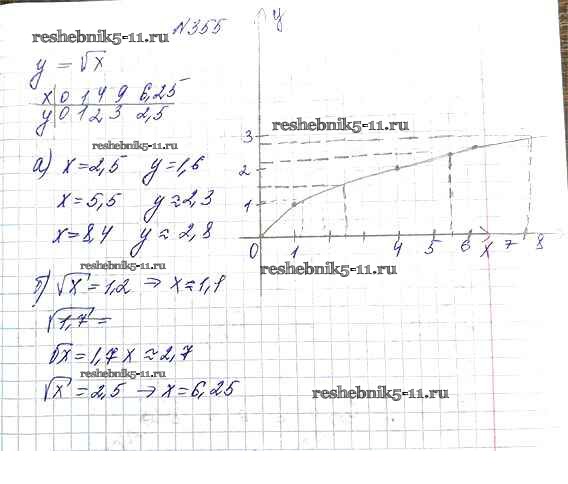 №355
reshebnik5-11.ru
y = √x
x 0 1 4 9 6,25
y 0 1 2 3 2,5
reshebnik5-11.ru
а) x=2,5 y=1,6
x=5,5 y≈2,3
x=8,4 y≈2,8
reshebnik5-11.ru
б) √x=1,2 → x≈1,1
√1,7 =
√x=1,7 x≈2,7
reshebnik5-11.ru
√x=2,5 → x=6,25
y
reshebnik5-11.ru
3
2
1
0 1 4 5 6 x 7 8
reshebnik5-11.ru
reshebnik5-11.ru